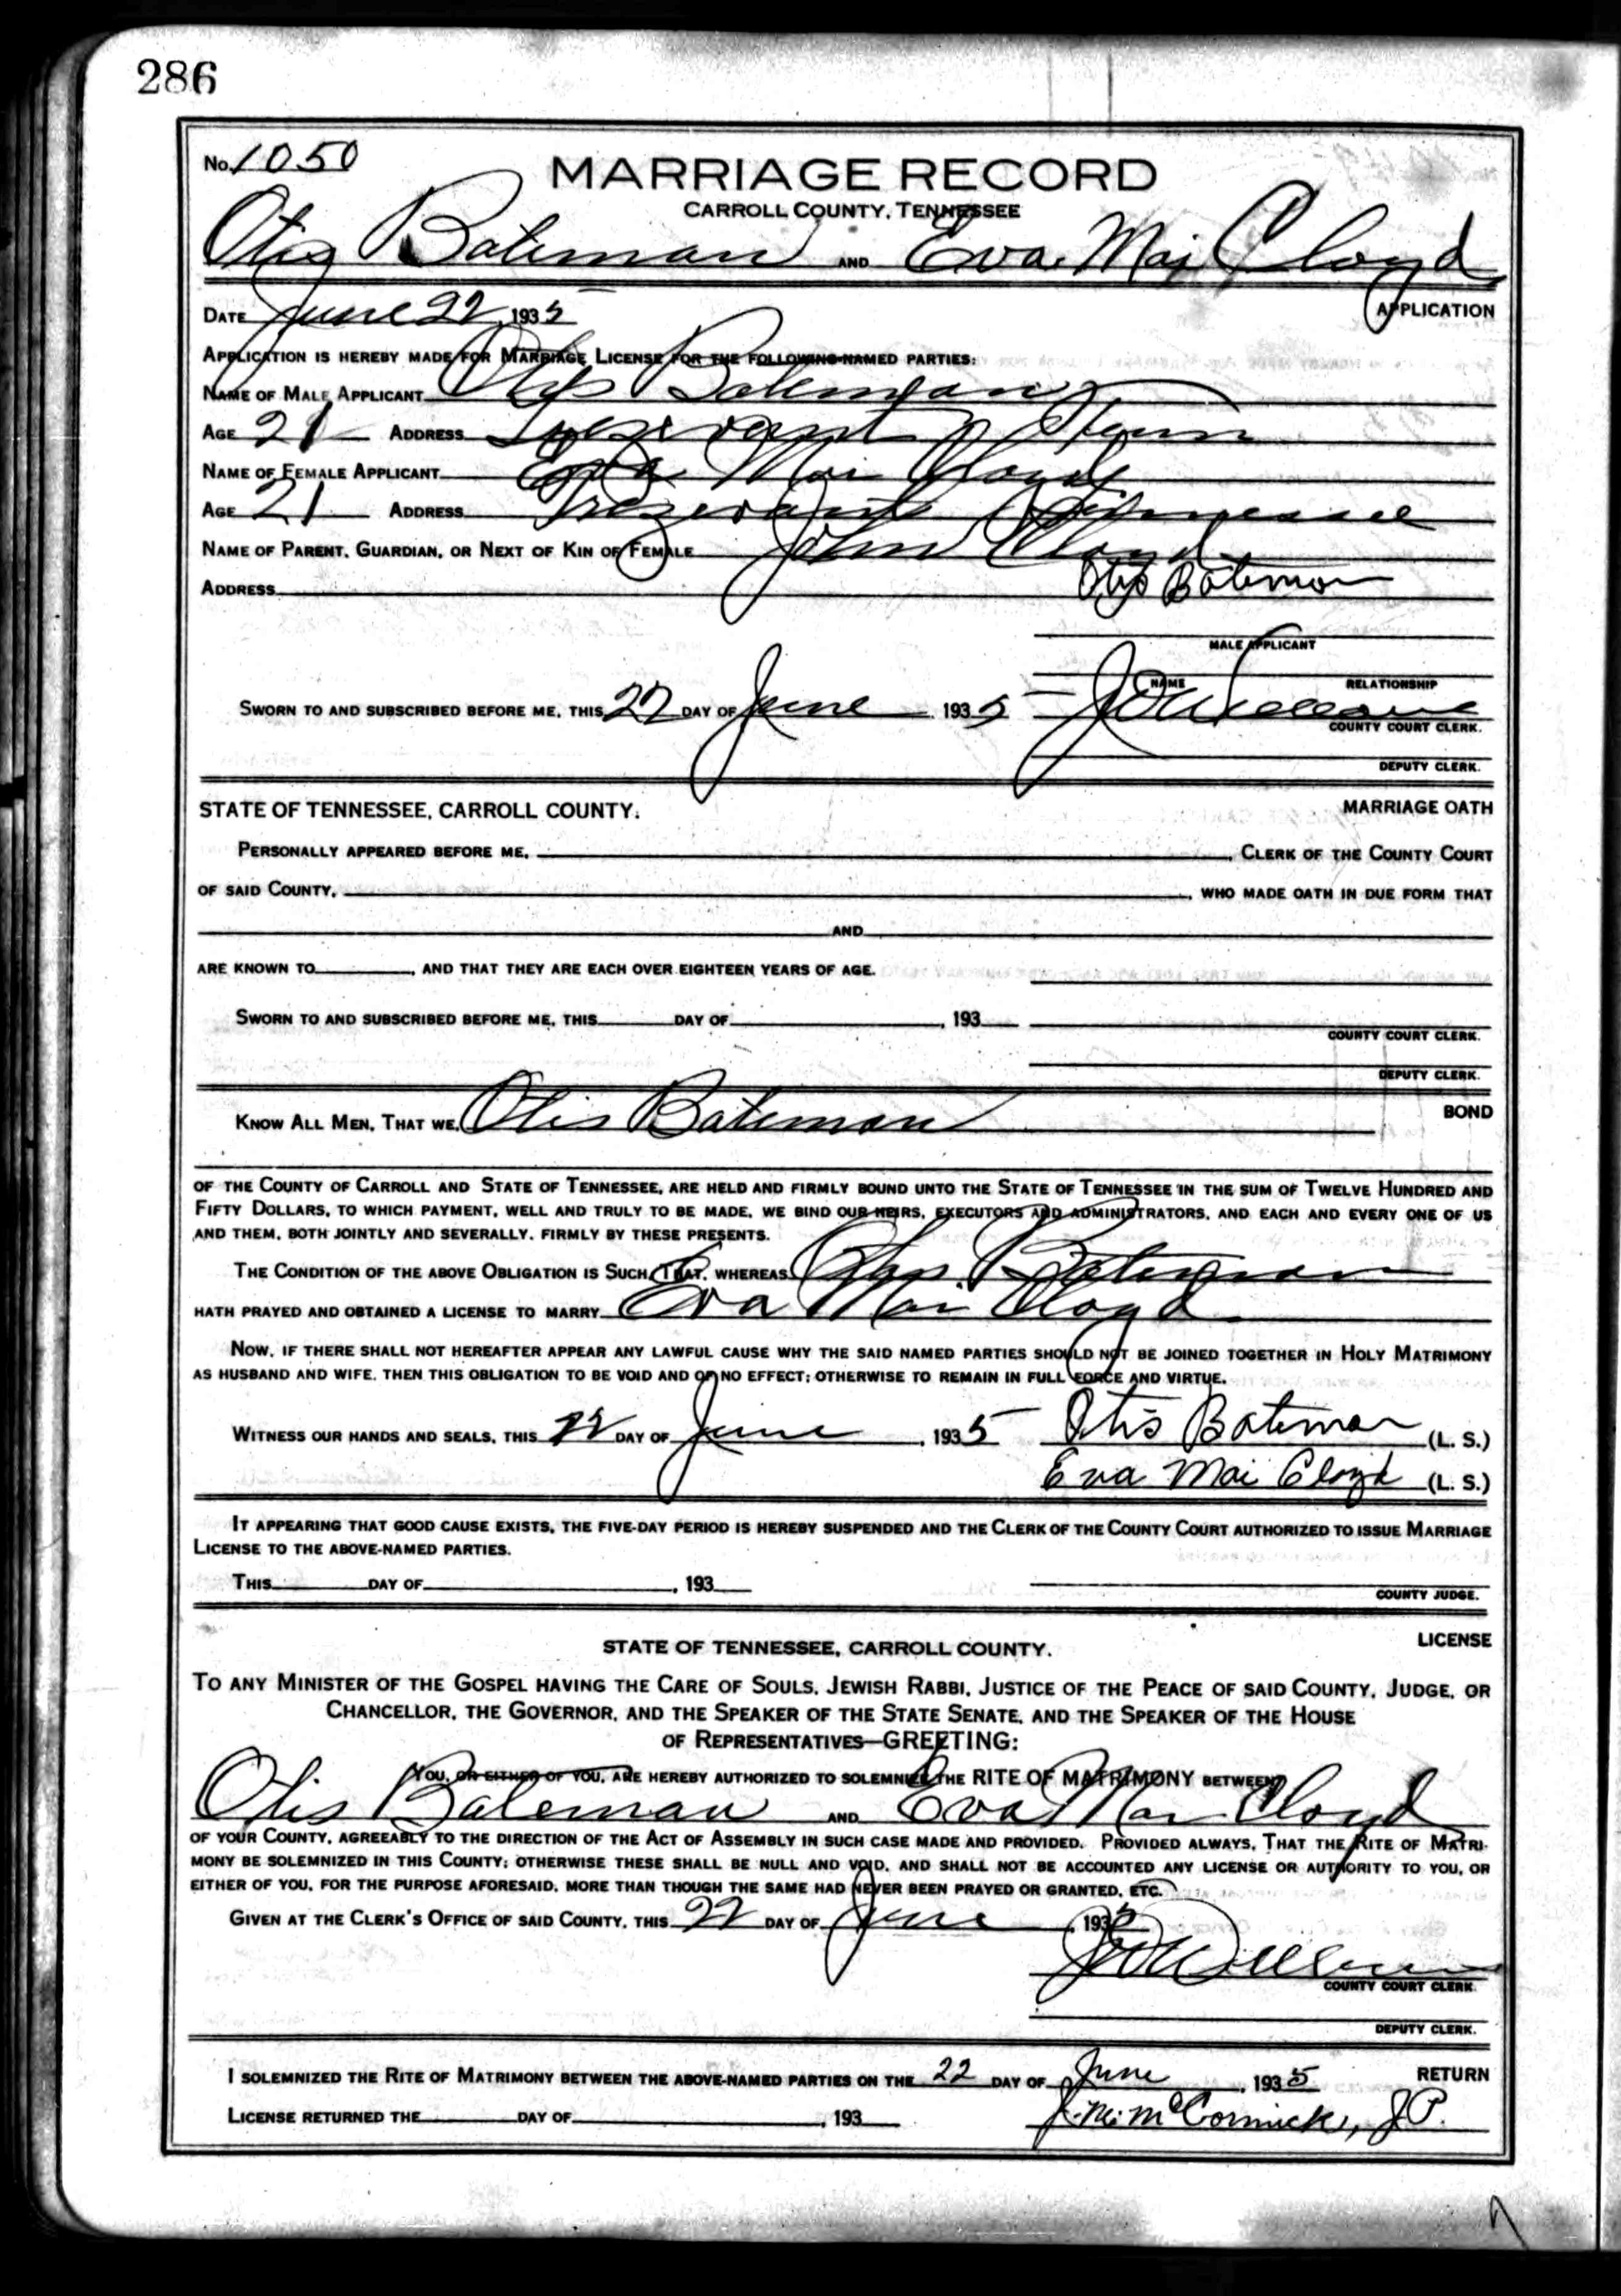 286
No. 1050
MARRIAGE RECORD
CARROLL COUNTY, TENNESSEE
Otis Bateman AND Eva Mai Cloyd
DATE June 22, 1935
APPLICATION
APPLICATION IS HEREBY MADE FOR MARRIAGE LICENSE FOR THE FOLLOWING-NAMED PARTIES:
NAME OF MALE APPLICANT Otis Bateman
AGE 21 ADDRESS Trezevant Tenn
NAME OF FEMALE APPLICANT Eva Mai Cloyd
AGE 21 ADDRESS Trezevant Tennessee
NAME OF PARENT, GUARDIAN, OR NEXT OF KIN OF FEMALE John Cloyd
ADDRESS Otis Bateman
MALE APPLICANT
NAME RELATIONSHIP
SWORN TO AND SUBSCRIBED BEFORE ME, THIS 22 DAY OF June, 1935
COUNTY COURT CLERK.
DEPUTY CLERK.
STATE OF TENNESSEE, CARROLL COUNTY. MARRIAGE OATH
PERSONALLY APPEARED BEFORE ME, , CLERK OF THE COUNTY COURT
OF SAID COUNTY, , WHO MADE OATH IN DUE FORM THAT
AND
ARE KNOWN TO , AND THAT THEY ARE EACH OVER EIGHTEEN YEARS OF AGE.
SWORN TO AND SUBSCRIBED BEFORE ME, THIS DAY OF , 193
COUNTY COURT CLERK.
DEPUTY CLERK.
BOND
KNOW ALL MEN, THAT WE, Otis Bateman
OF THE COUNTY OF CARROLL AND STATE OF TENNESSEE, ARE HELD AND FIRMLY BOUND UNTO THE STATE OF TENNESSEE IN THE SUM OF TWELVE HUNDRED AND
FIFTY DOLLARS, TO WHICH PAYMENT, WELL AND TRULY TO BE MADE, WE BIND OUR HEIRS, EXECUTORS AND ADMINISTRATORS, AND EACH AND EVERY ONE OF US
AND THEM, BOTH JOINTLY AND SEVERALLY, FIRMLY BY THESE PRESENTS.
THE CONDITION OF THE ABOVE OBLIGATION IS SUCH, THAT, WHEREAS Otis Bateman
HATH PRAYED AND OBTAINED A LICENSE TO MARRY Eva Mai Cloyd
NOW, IF THERE SHALL NOT HEREAFTER APPEAR ANY LAWFUL CAUSE WHY THE SAID NAMED PARTIES SHOULD NOT BE JOINED TOGETHER IN HOLY MATRIMONY
AS HUSBAND AND WIFE, THEN THIS OBLIGATION TO BE VOID AND OF NO EFFECT; OTHERWISE TO REMAIN IN FULL FORCE AND VIRTUE.
WITNESS OUR HANDS AND SEALS, THIS 22 DAY OF June, 1935 Otis Bateman (L. S.)
Eva Mai Cloyd (L. S.)
IT APPEARING THAT GOOD CAUSE EXISTS, THE FIVE-DAY PERIOD IS HEREBY SUSPENDED AND THE CLERK OF THE COUNTY COURT AUTHORIZED TO ISSUE MARRIAGE
LICENSE TO THE ABOVE-NAMED PARTIES.
THIS DAY OF , 193
COUNTY JUDGE.
LICENSE
STATE OF TENNESSEE, CARROLL COUNTY.
TO ANY MINISTER OF THE GOSPEL HAVING THE CARE OF SOULS, JEWISH RABBI, JUSTICE OF THE PEACE OF SAID COUNTY, JUDGE, OR
CHANCELLOR, THE GOVERNOR, AND THE SPEAKER OF THE STATE SENATE, AND THE SPEAKER OF THE HOUSE
OF REPRESENTATIVES—GREETING:
YOU, OR EITHER OF YOU, ARE HEREBY AUTHORIZED TO SOLEMNIZE THE RITE OF MATRIMONY BETWEEN
Otis Bateman AND Eva Mai Cloyd
OF YOUR COUNTY, AGREEABLY TO THE DIRECTION OF THE ACT OF ASSEMBLY IN SUCH CASE MADE AND PROVIDED. PROVIDED ALWAYS, THAT THE RITE OF MATRI-
MONY BE SOLEMNIZED IN THIS COUNTY; OTHERWISE THESE SHALL BE NULL AND VOID, AND SHALL NOT BE ACCOUNTED ANY LICENSE OR AUTHORITY TO YOU, OR
EITHER OF YOU, FOR THE PURPOSE AFORESAID, MORE THAN THOUGH THE SAME HAD NEVER BEEN PRAYED OR GRANTED, ETC.
GIVEN AT THE CLERK'S OFFICE OF SAID COUNTY, THIS 22 DAY OF June, 1935
COUNTY COURT CLERK.
DEPUTY CLERK.
I SOLEMNIZED THE RITE OF MATRIMONY BETWEEN THE ABOVE-NAMED PARTIES ON THE 22 DAY OF June, 1935 RETURN
LICENSE RETURNED THE DAY OF , 193 McCormick, J.P.